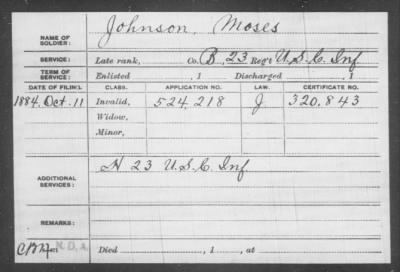 NAME OF SOLDIER: Johnson, Moses
SERVICE: Late rank, Co. B, 23 Reg't U.S.C. Inf
TERM OF SERVICE: Enlisted , 1 Discharged , 1
DATE OF FILING. CLASS. APPLICATION NO. LAW. CERTIFICATE NO.
1884, Oct. 11 Invalid, 524,218 J 320,843
Widow,
Minor,
ADDITIONAL SERVICES: H 23 U.S.C. Inf
REMARKS:
Died , 1 , at